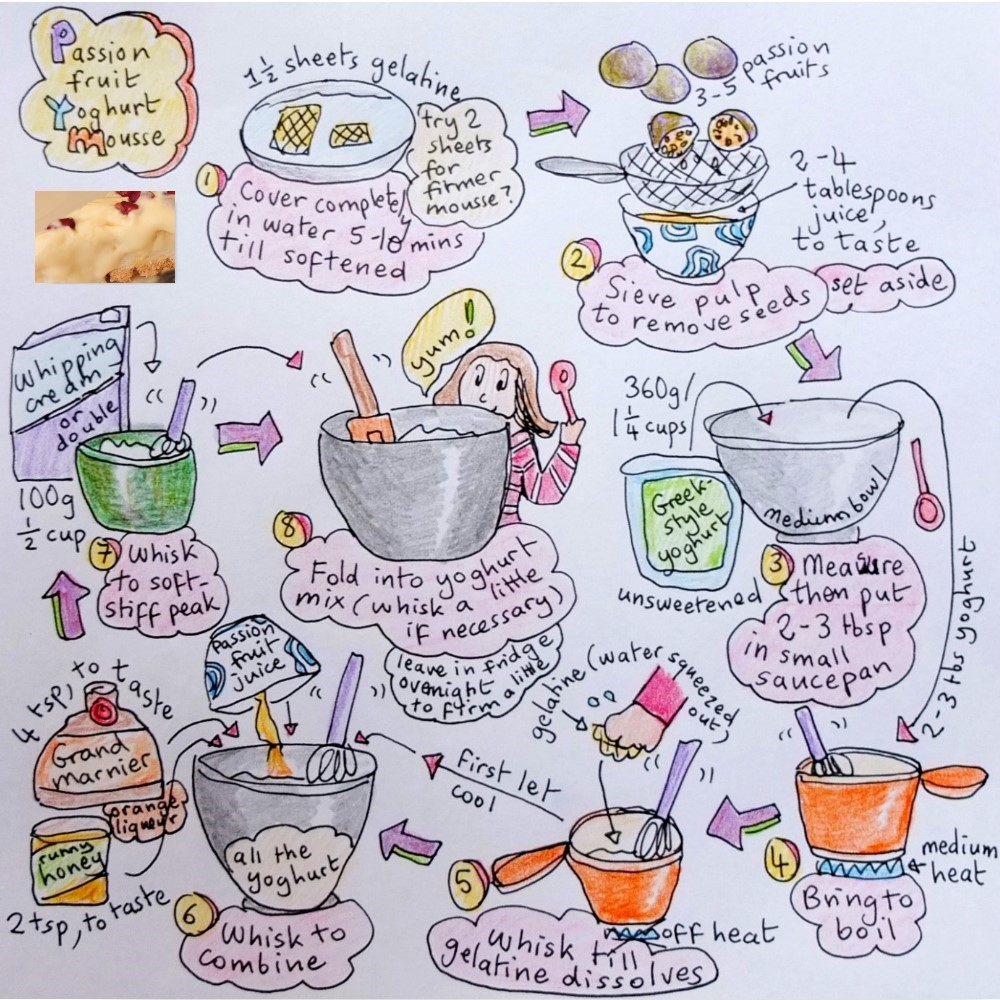 Passion
fruit
Yoghurt
Mousse
1½ sheets gelatine
try 2
sheets
for
firmer
mousse?
1
Cover completely
in water 5-10 mins
till softened
3-5 passion
fruits
2-4
tablespoons
juice,
to taste
2
Sieve pulp
to remove seeds
set aside
360g/
1¼ cups
Greek-
style
yoghurt
unsweetened
medium bowl
3
Measure
then put
2-3 tbsp
in small
saucepan
2-3 tbs yoghurt
medium
heat
4
Bring to
boil
gelatine (water squeezed
out)
5
off heat
Whisk till
gelatine dissolves
First let
cool
Passion
fruit
juice
4 tsp, to taste
Grand
marnier
orange
liqueur
runny
honey
2 tsp, to taste
all the
yoghurt
6
Whisk to
combine
Whipping
cream
or
double
100g
½ cup
7
Whisk
to soft-
stiff peak
yum!
8
Fold into yoghurt
mix (whisk a little
if necessary)
leave in fridge
overnight
to firm a little